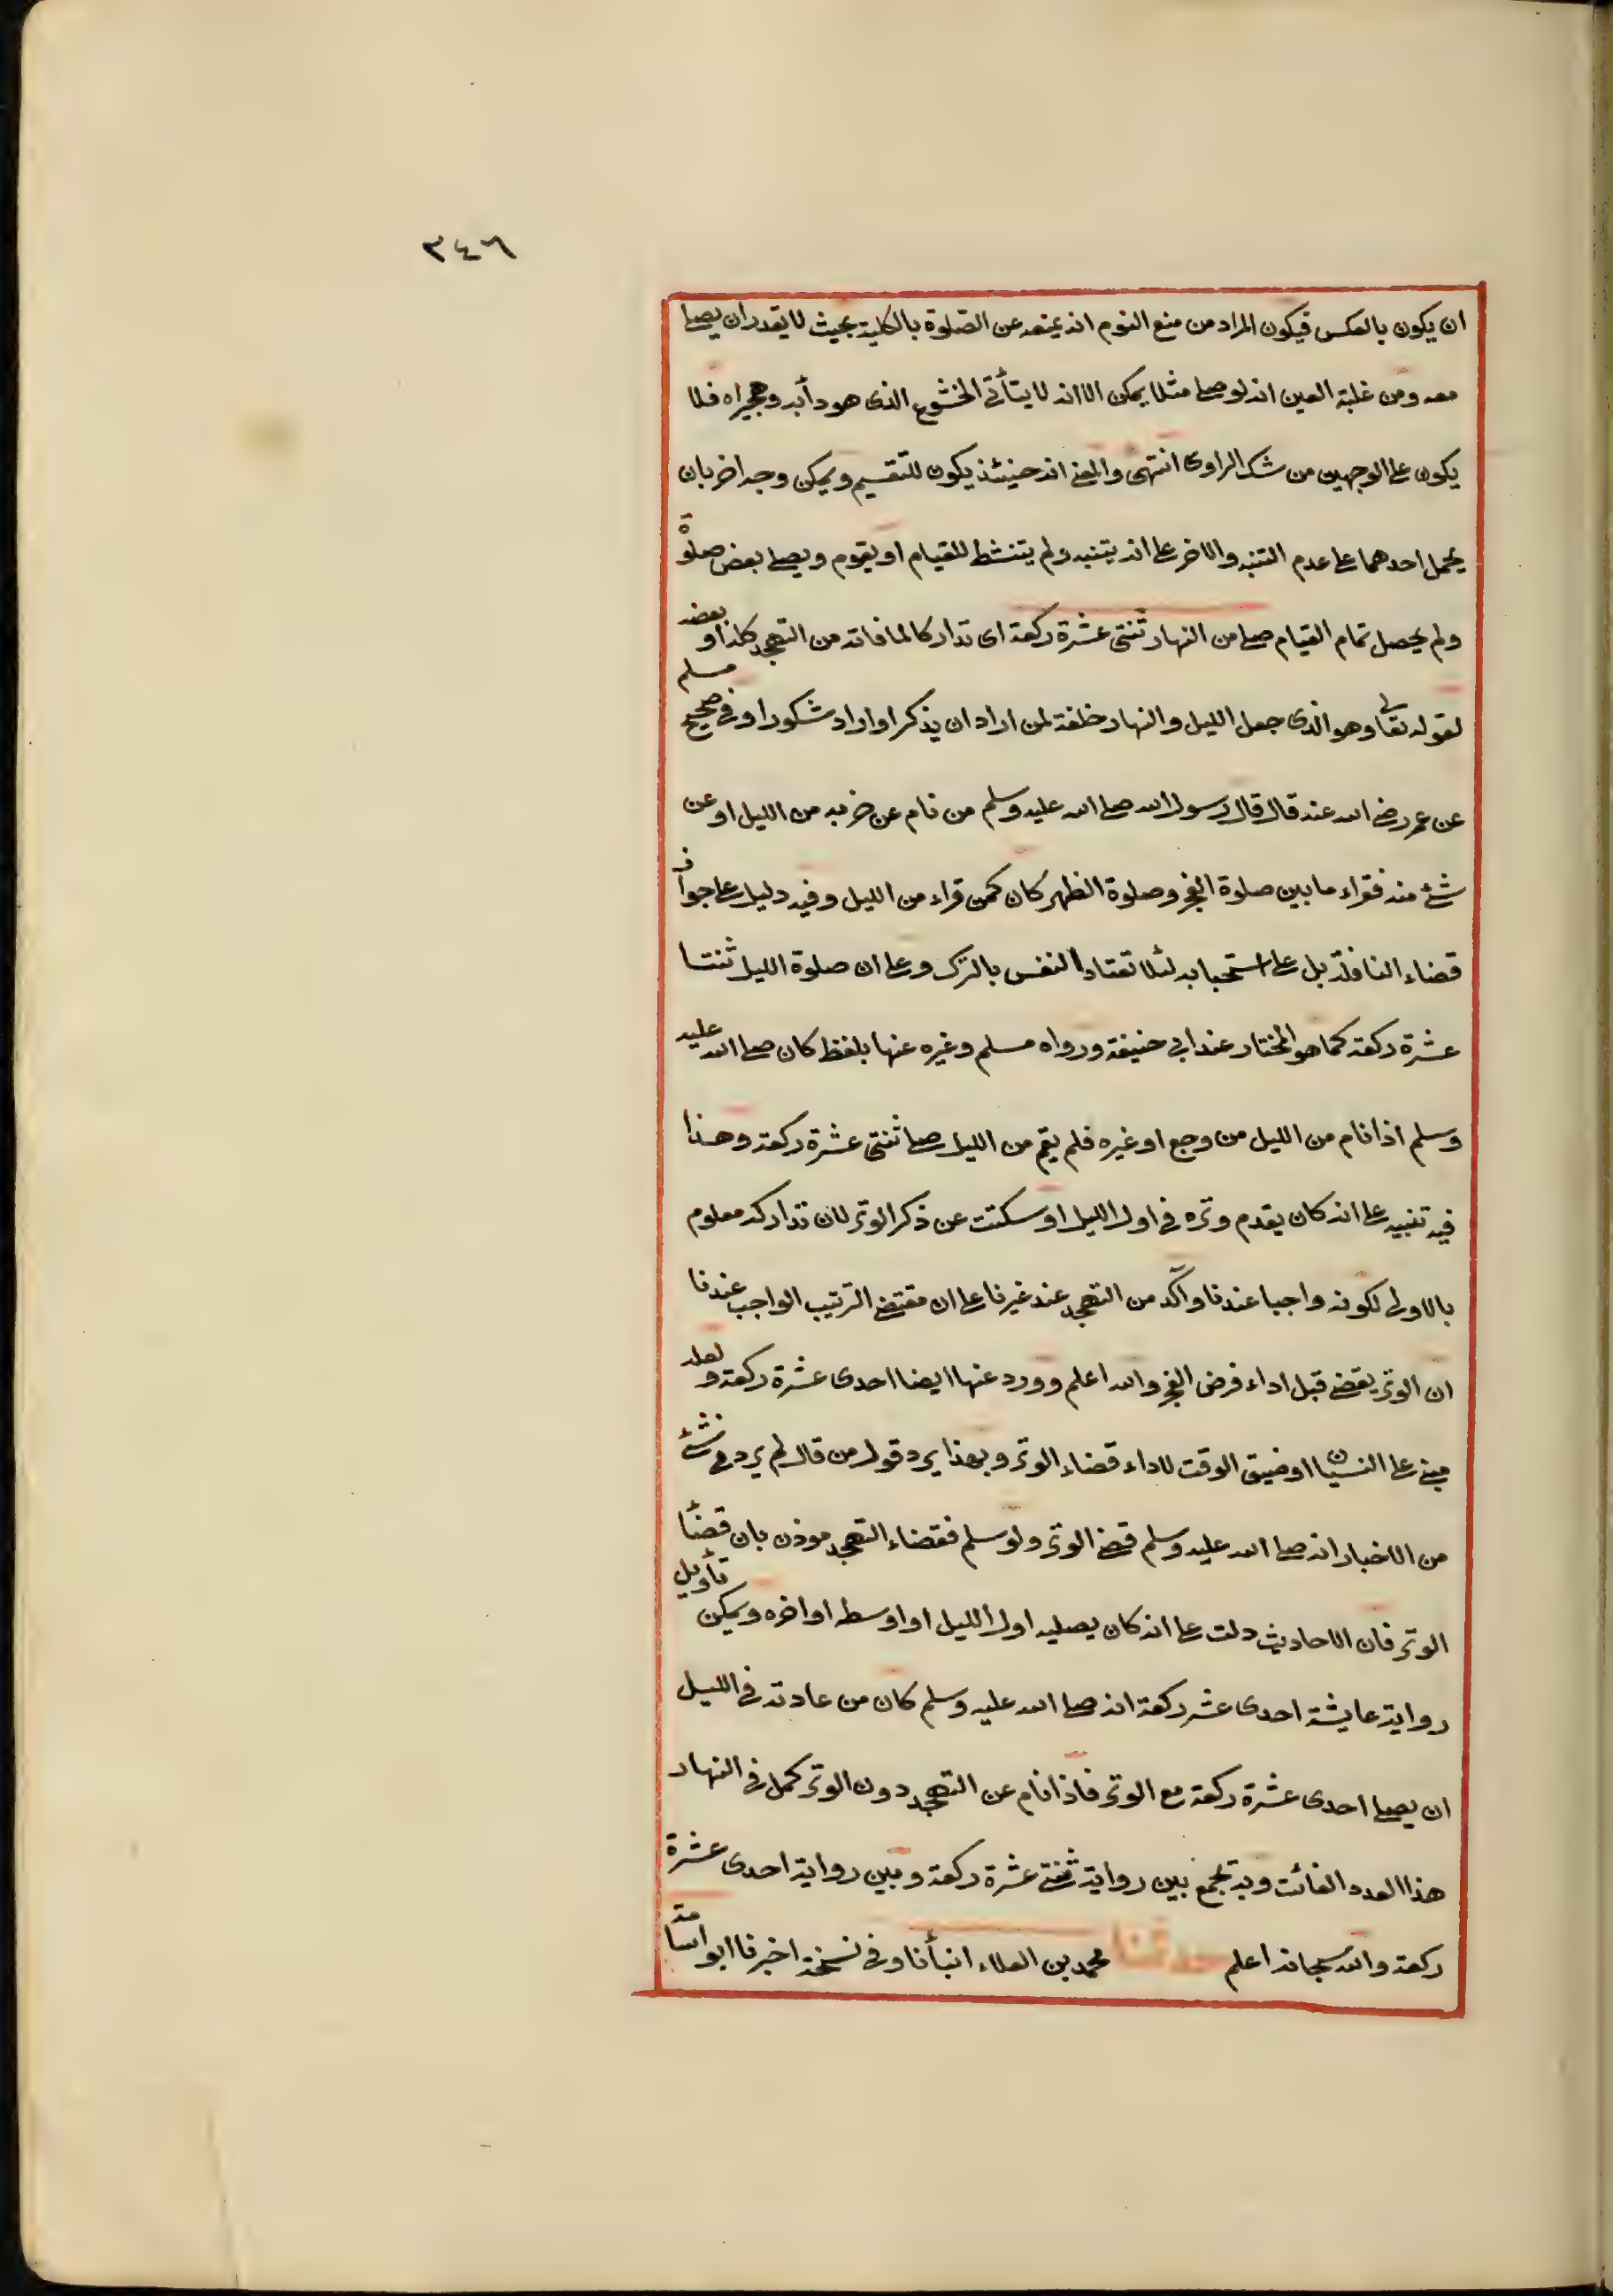 ٣٤٦
ان يكون بالعكس فيكون المراد من منع النوم انه يمنعه عن الصّلوة بالكلية بحيث لا يقدر ان يصلى
معه ومن غلبة العين انه لو صلى مثلا يمكن الا انه لا يتأتى الخشوع الذى هو دأبه وهجيراه فلا
يكون على الوجهين من شك الراوى انتهى والمعنى انه حينئذ يكون للتقسيم ويمكن وجه اخر بان
يحمل احدهما على عدم التنبه والاخر على انه يتنبه ولم يتنشط للقيام او يقوم ويصلى بعض صلوة
ولم يحصل تمام القيام صلى من النهار ثنتى عشرة ركعة اى تداركا لما فاته من التهجد كله او بعضه
لقوله تعالى وهو الذى جعل الليل والنهار خلفة لمن اراد ان يذكر او اراد شكورا وفى صحيح مسلم
عن عمر رضى الله عنه قال قال رسول الله صلى الله عليه وسلم من نام عن حزبه من الليل او عن
شئ منه فقراء ما بين صلوة الفجر وصلوة الظهر كان كمن قراء من الليل وفيه دليل على جواز
قضاء النافلة بل على استحبابه لئلا تعتاد النفس بالترك وعلى ان صلوة الليل ثنتا
عشرة ركعة كما هو المختار عند ابى حنيفة ورواه مسلم وغيره عنها بلفظ كان صلى الله عليه
وسلم اذا نام من الليل من وجع او غيره فلم يقم من الليل صلى ثنتى عشرة ركعة وهذا
فيه تنبيه على انه كان يقدم وتره فى اول الليل او سكتت عن ذكر الوتر لان تداركه معلوم
بالاولى لكونه واجبا عندنا وآكد من التهجد عند غيرنا على ان مقتضى الترتيب الواجب عندنا
ان الوتر يقضى قبل اداء فرض الفجر والله اعلم وورد عنها ايضا احدى عشرة ركعة ولعله
مبنى على النسيان او ضيق الوقت لاداء قضاء الوتر وبهذا يرد قول من قال لم يرد فى شئ
من الاخبار انه صلى الله عليه وسلم قضى الوتر ولو سلم فقضاء التهجد موذن بان قضأ
الوتر فان الاحاديث دلت على انه كان يصليه اول الليل او اوسطه او اخره ويمكن تأويل
رواية عايشة احدى عشر ركعة انه صلى الله عليه وسلم كان من عادته فى الليل
ان يصلى احدى عشرة ركعة مع الوتر فاذا نام عن التهجد دون الوتر كمل فى النهار
هذا العدد الفائت وبه يجمع بين رواية ثنتى عشرة ركعة وبين رواية احدى عشرة
ركعة والله سبحانه اعلم حدثنا محمد بن العلاء انبأنا وفى نسخة اخبرنا ابو اسامة